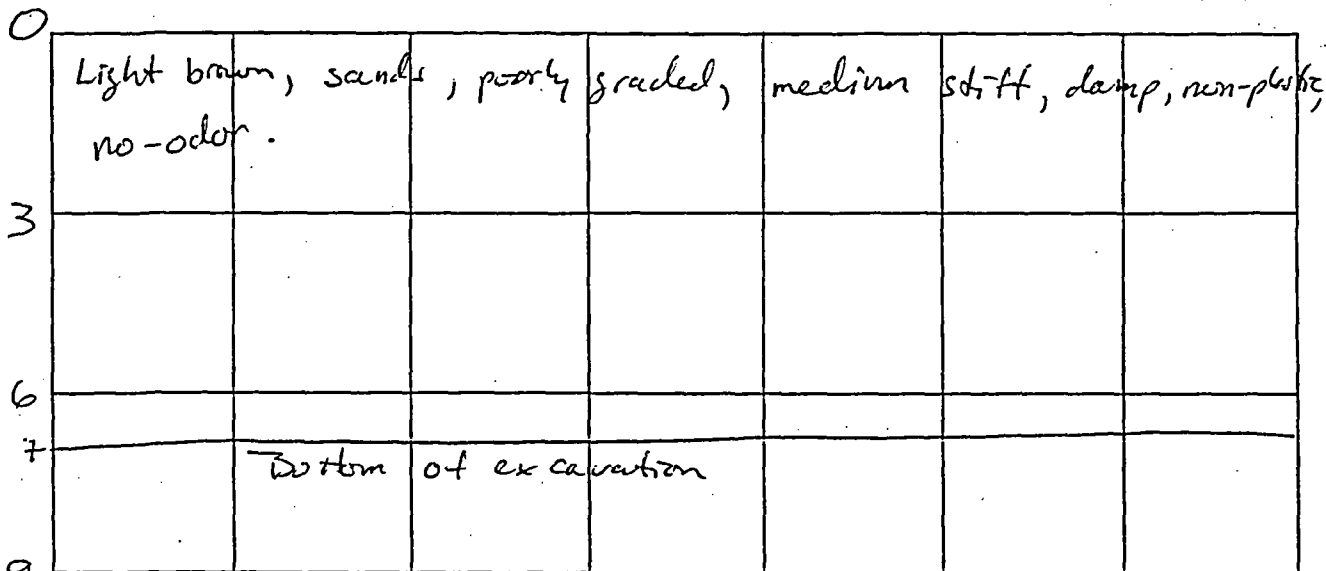 0
Light brown, sands, poorly graded, medium stiff, damp, non-plastic,
no-odor.
3
6
7
Bottom of excavation
9